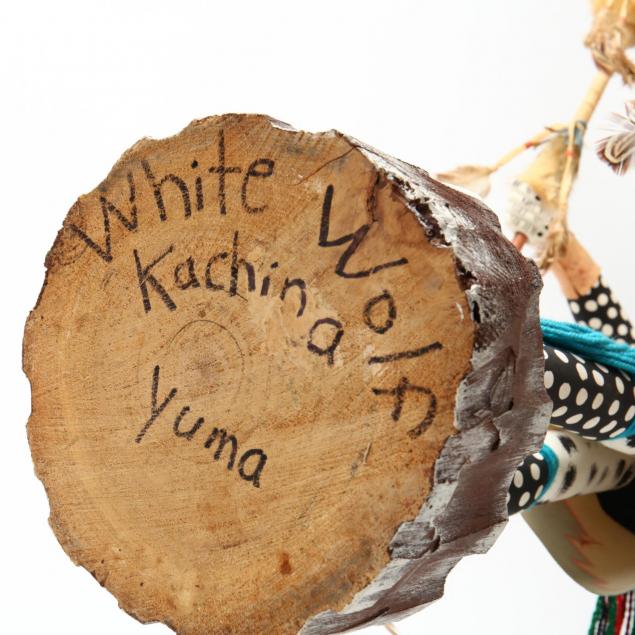 White Wolf
Kachina
Yuma